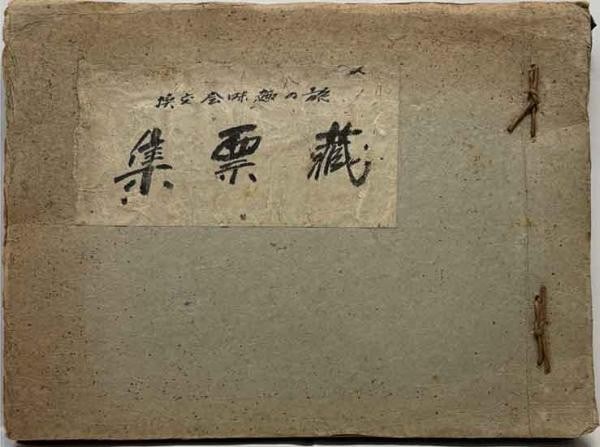 旅の趣味会交換
藏票集